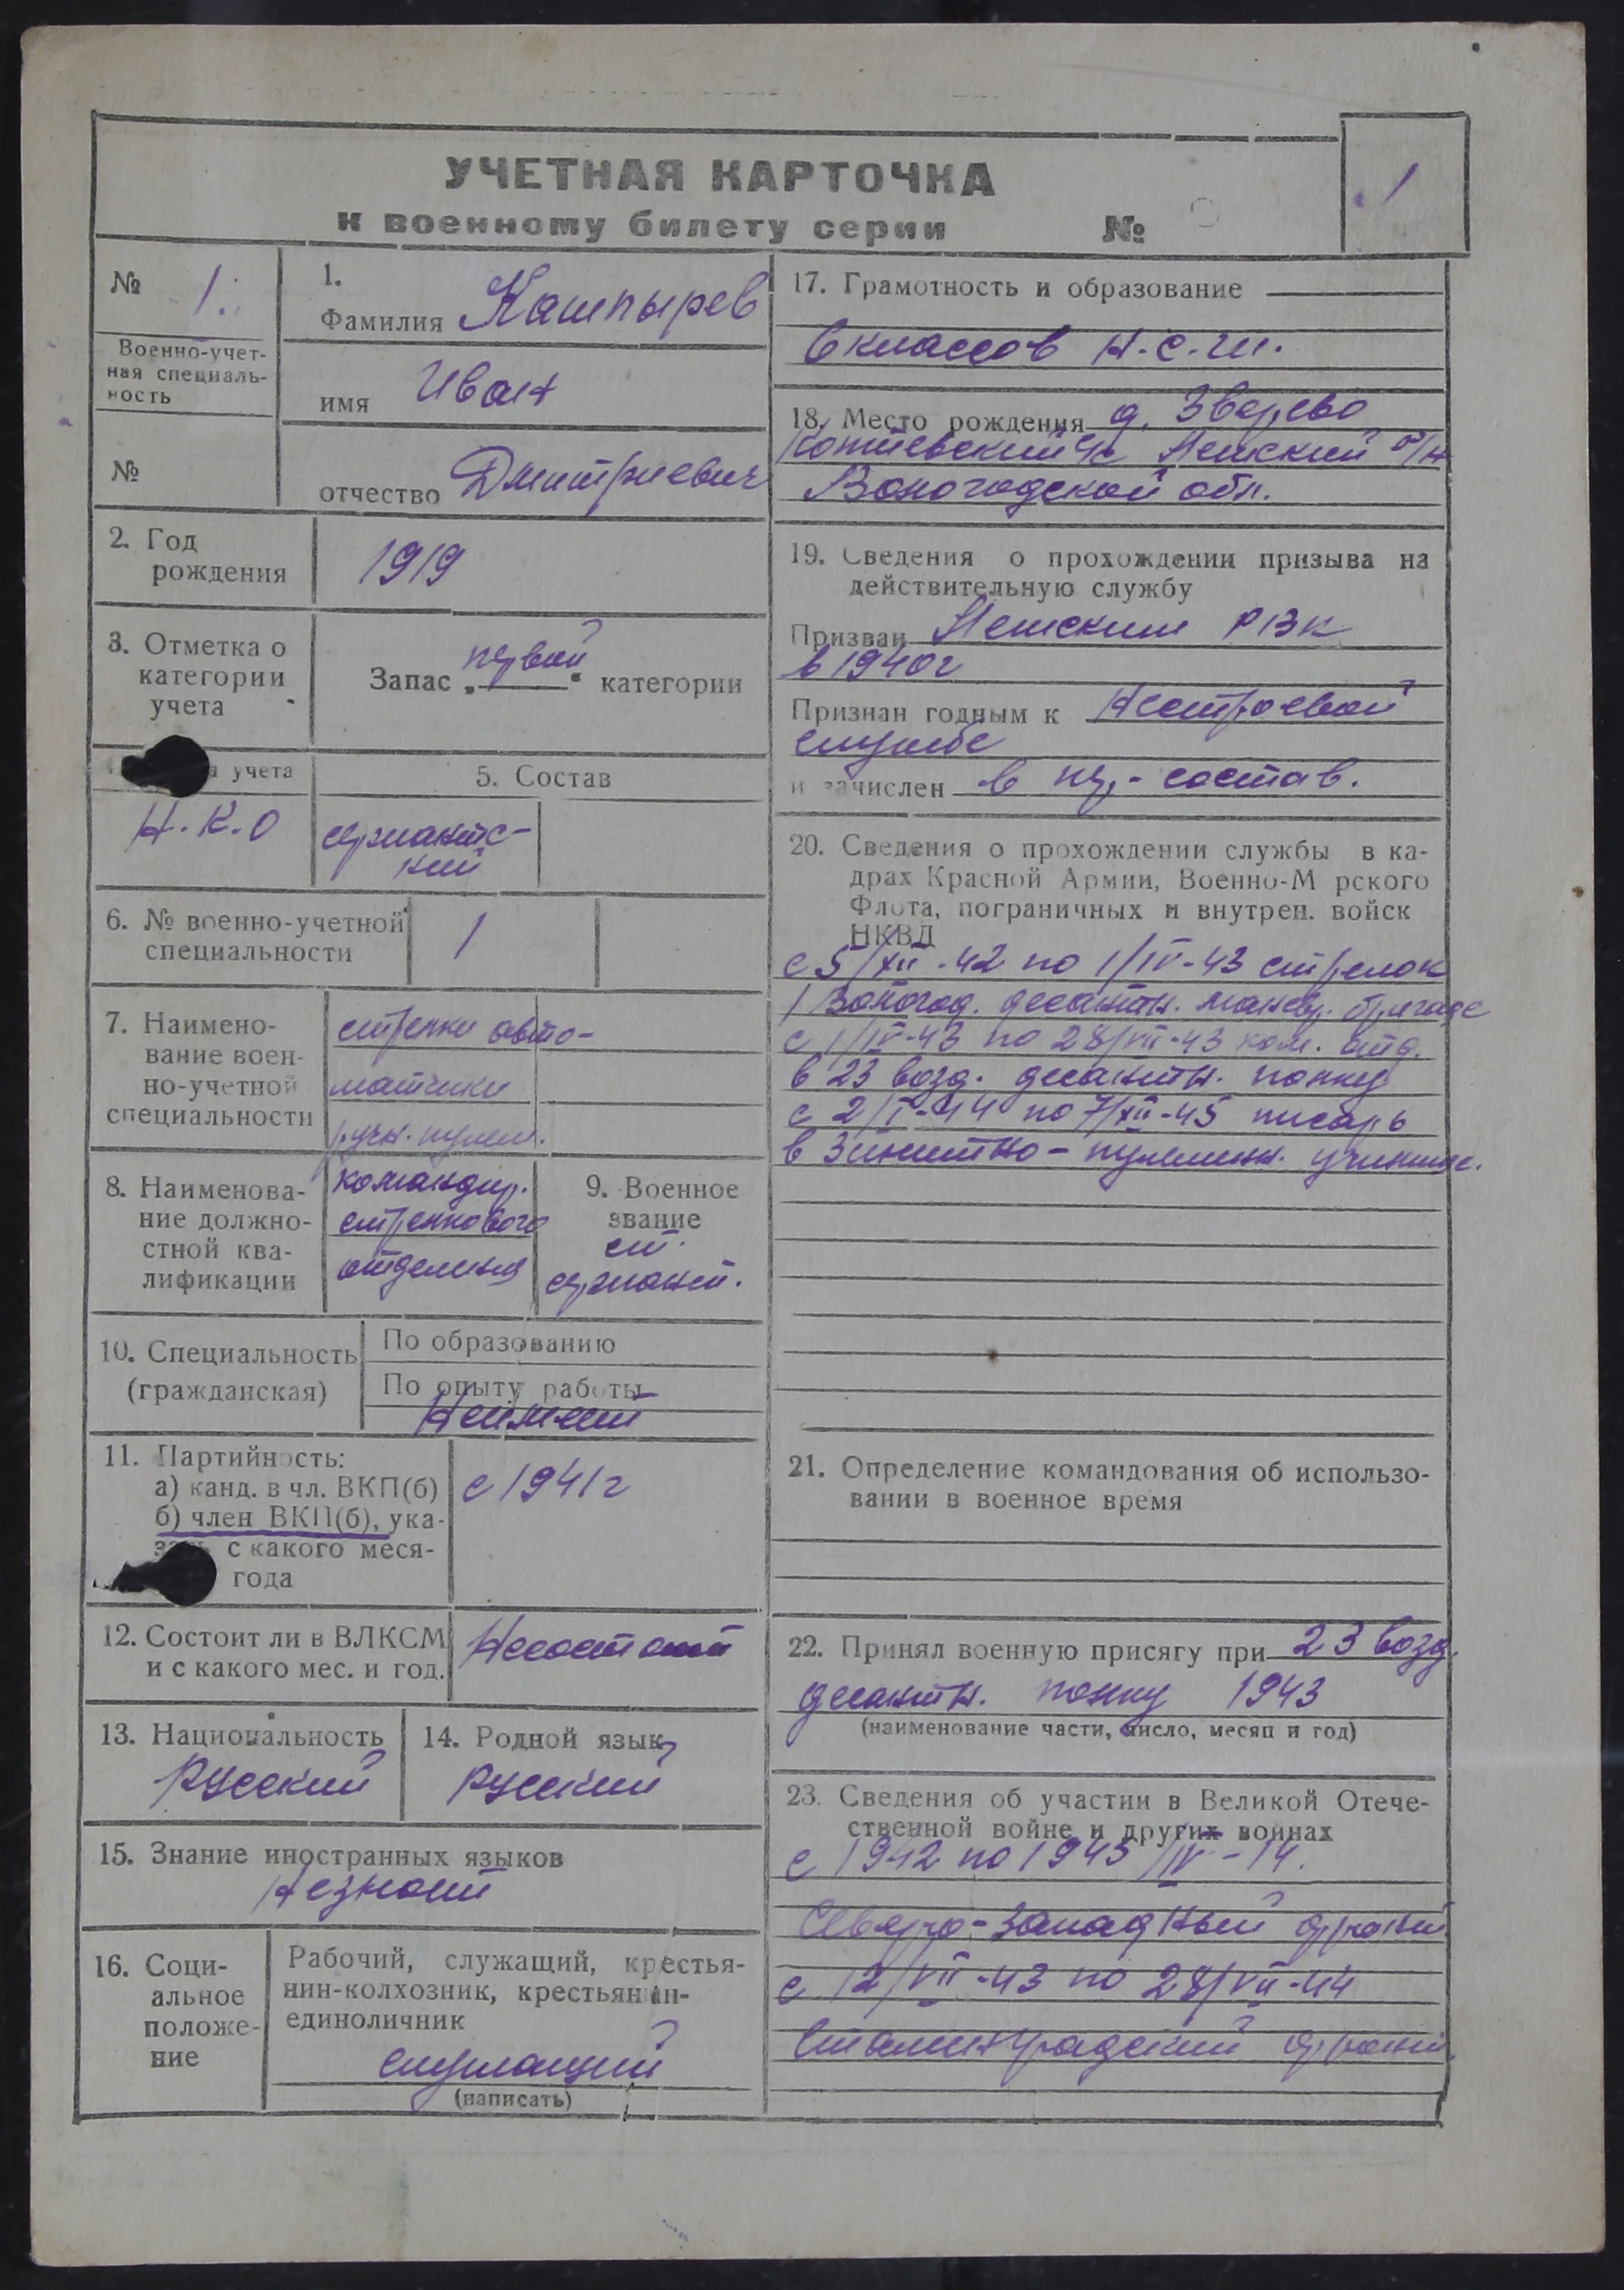 УЧЕТНАЯ КАРТОЧКА
к военному билету серии №
1
№ 1
Военно-учет-
ная специаль-
ность
№
1.
Фамилия Кашпырев
имя Иван
отчество Дмитриевич
2. Год
рождения
1919
3. Отметка о
категории
учета
Запас „первой“ категории
учета
Н.К.О
5. Состав
сержантс-
кий
6. № военно-учетной
специальности
1
7. Наимено-
вание воен-
но-учетной
специальности
стрелки авто-
матчики
ручн. пулем.
8. Наименова-
ние должно-
стной ква-
лификации
командир.
стрелкового
отделения
9. Военное
звание
ст.
сержант.
10. Специальность
(гражданская)
По образованию
По опыту работы
Неимеет
11. Партийность:
а) канд. в чл. ВКП(б)
б) член ВКП(б), ука-
зать с какого меся-
года
с 1941г
12. Состоит ли в ВЛКСМ
и с какого мес. и год.
Несостоит
13. Национальность
Русский
14. Родной язык
Русский
15. Знание иностранных языков
Незнает
16. Соци-
альное
положе-
ние
Рабочий, служащий, крестья-
нин-колхозник, крестьянин-
единоличник
служащий
(написать)
17. Грамотность и образование
6 классов Н.С.Ш.
18. Место рождения д. Зверево
с/с р/н
Вологодской обл.
19. Сведения о прохождении призыва на
действительную службу
Призван РВК
в 1940г
Признан годным к Нестроевой
службе
и зачислен в ряд. состав.
20. Сведения о прохождении службы в ка-
драх Красной Армии, Военно-Морского
Флота, пограничных и внутрен. войск
НКВД
с 5/XII-42 по 1/IV-43 стрелок
1 Вологод. десантн. маневр. бригаде
с 1/IV-43 по 28/VII-43 ком. отд.
в 23 возд. десантн. полку
с 2/I-44 по 7/XII-45 писарь
в Зинитно-пулеметн. училище.
21. Определение командования об использо-
вании в военное время
22. Принял военную присягу при 23 возд.
десантн. полку 1943
(наименование части, число, месяц и год)
23. Сведения об участии в Великой Отече-
ственной войне и других войнах
с 1942 по 1943/IV-14.
Северо-Западный фронт
с 12/VII-43 по 28/VII-44
Сталинградский фронт.